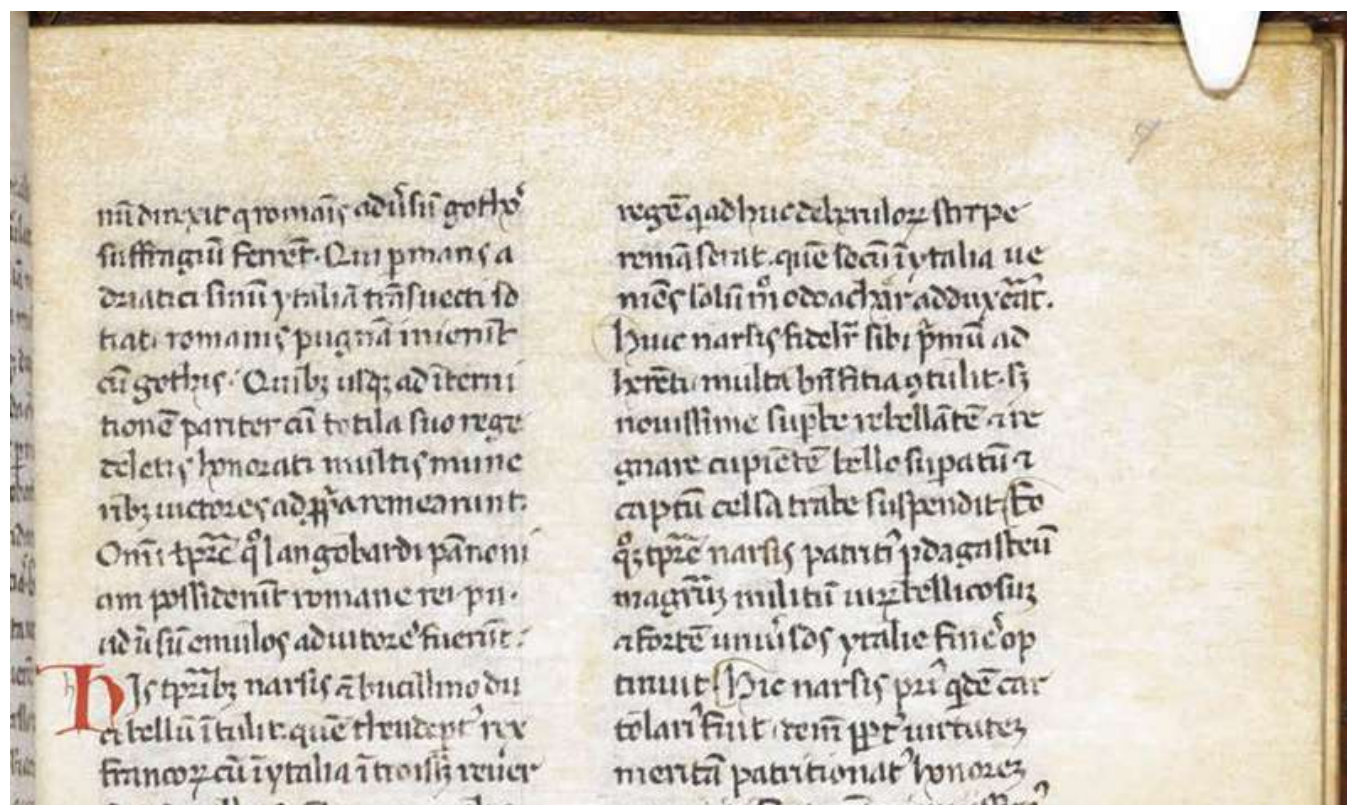 nū direxit q romaīs adũsū gothoꝝ
suffragiū ferrēt. Qui p maris a
driatici sinū ytaliā trāsuecti so
tiati romanis pugnā inierūt
cū gothis. Quibꝫ usqꝫ ad īterni
tionē pariter cū totila suo rege
deletis honorati multis mune
ribꝫ uictores ad ꝓpͥa remearunt.
Omī tp̄rē qͦ langobardi pānoni
am possiderūt romane rei pu.
adũsū emulos adiutores fuerūt.
hIs tp̄ribꝫ narsis ā bucillino du
ci bellū ītulit. quē theudepͭ rex
francoꝝ cū ī ytalia ītroissꝫ reuer
regē q adhuc de brulorꝝ stirpe
remāserat. quē secū ī ytalia ue
niēs solū mͦ odoachar adduxerat.
Huic narsis fidelr̄ sibi p̄mū ad
herēti multa bn̄fitia ꝯtulit. sꝫ
nouissime supbe rebellātē ⁊ re
gnare cupiētē bello supatū ⁊
captū celsa trabe suspendit. Eo
qͦꝫ tp̄rē narsis patritiꝰ p dagisteū
magr̄ꝫ militū uirꝫ bellicosuꝫ
⁊ fortē uniũsos ytalie fines op
tinuit. Hic narsis priꝰ qͥdē car
tolariꝰ fuit. dein ꝓpt̉ uirtuteꝫ
meritā patritionatꝰ honoreꝫ